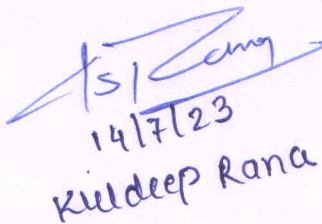 14/7/23
Kuldeep Rana